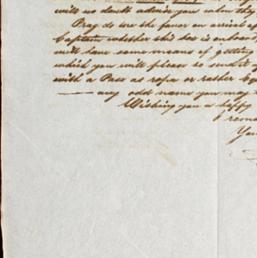 will no doubt advise you
Pray do me the favor on arrival of
Captain whether this box is on board
will have some means of getting
which you will please to
with a Pass as rosa or rather
any odd name you may
Wishing you a happy
I remain
You